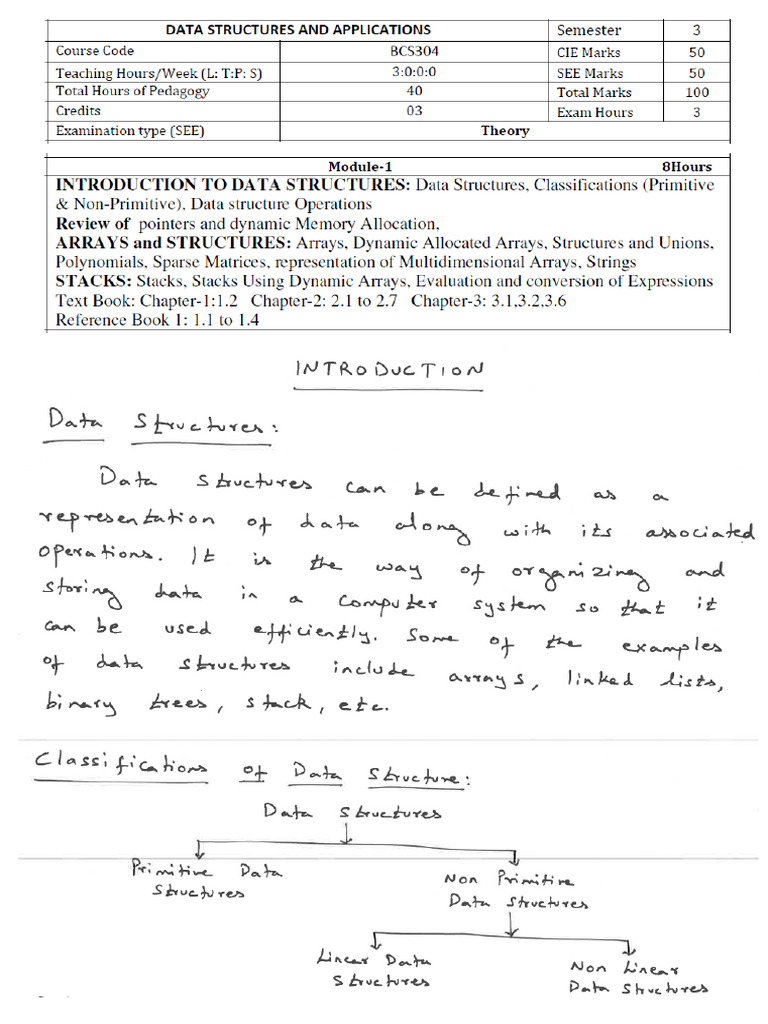 DATA STRUCTURES AND APPLICATIONS Semester 3
Course Code BCS304 CIE Marks 50
Teaching Hours/Week (L: T:P: S) 3:0:0:0 SEE Marks 50
Total Hours of Pedagogy 40 Total Marks 100
Credits 03 Exam Hours 3
Examination type (SEE) Theory
Module-1 8Hours
INTRODUCTION TO DATA STRUCTURES: Data Structures, Classifications (Primitive
& Non-Primitive), Data structure Operations
Review of pointers and dynamic Memory Allocation,
ARRAYS and STRUCTURES: Arrays, Dynamic Allocated Arrays, Structures and Unions,
Polynomials, Sparse Matrices, representation of Multidimensional Arrays, Strings
STACKS: Stacks, Stacks Using Dynamic Arrays, Evaluation and conversion of Expressions
Text Book: Chapter-1:1.2 Chapter-2: 2.1 to 2.7 Chapter-3: 3.1,3.2,3.6
Reference Book 1: 1.1 to 1.4
INTRODUCTION
Data Structures:
Data structures can be defined as a
representation of data along with its associated
operations. It is the way of organizing and
storing data in a computer system so that it
can be used efficiently. Some of the examples
of data structures include arrays, linked lists,
binary trees, stack, etc.
Classifications of Data Structure:
Data Structures
Primitive Data
Structures
Non Primitive
Data Structures
Linear Data
Structures
Non Linear
Data Structures